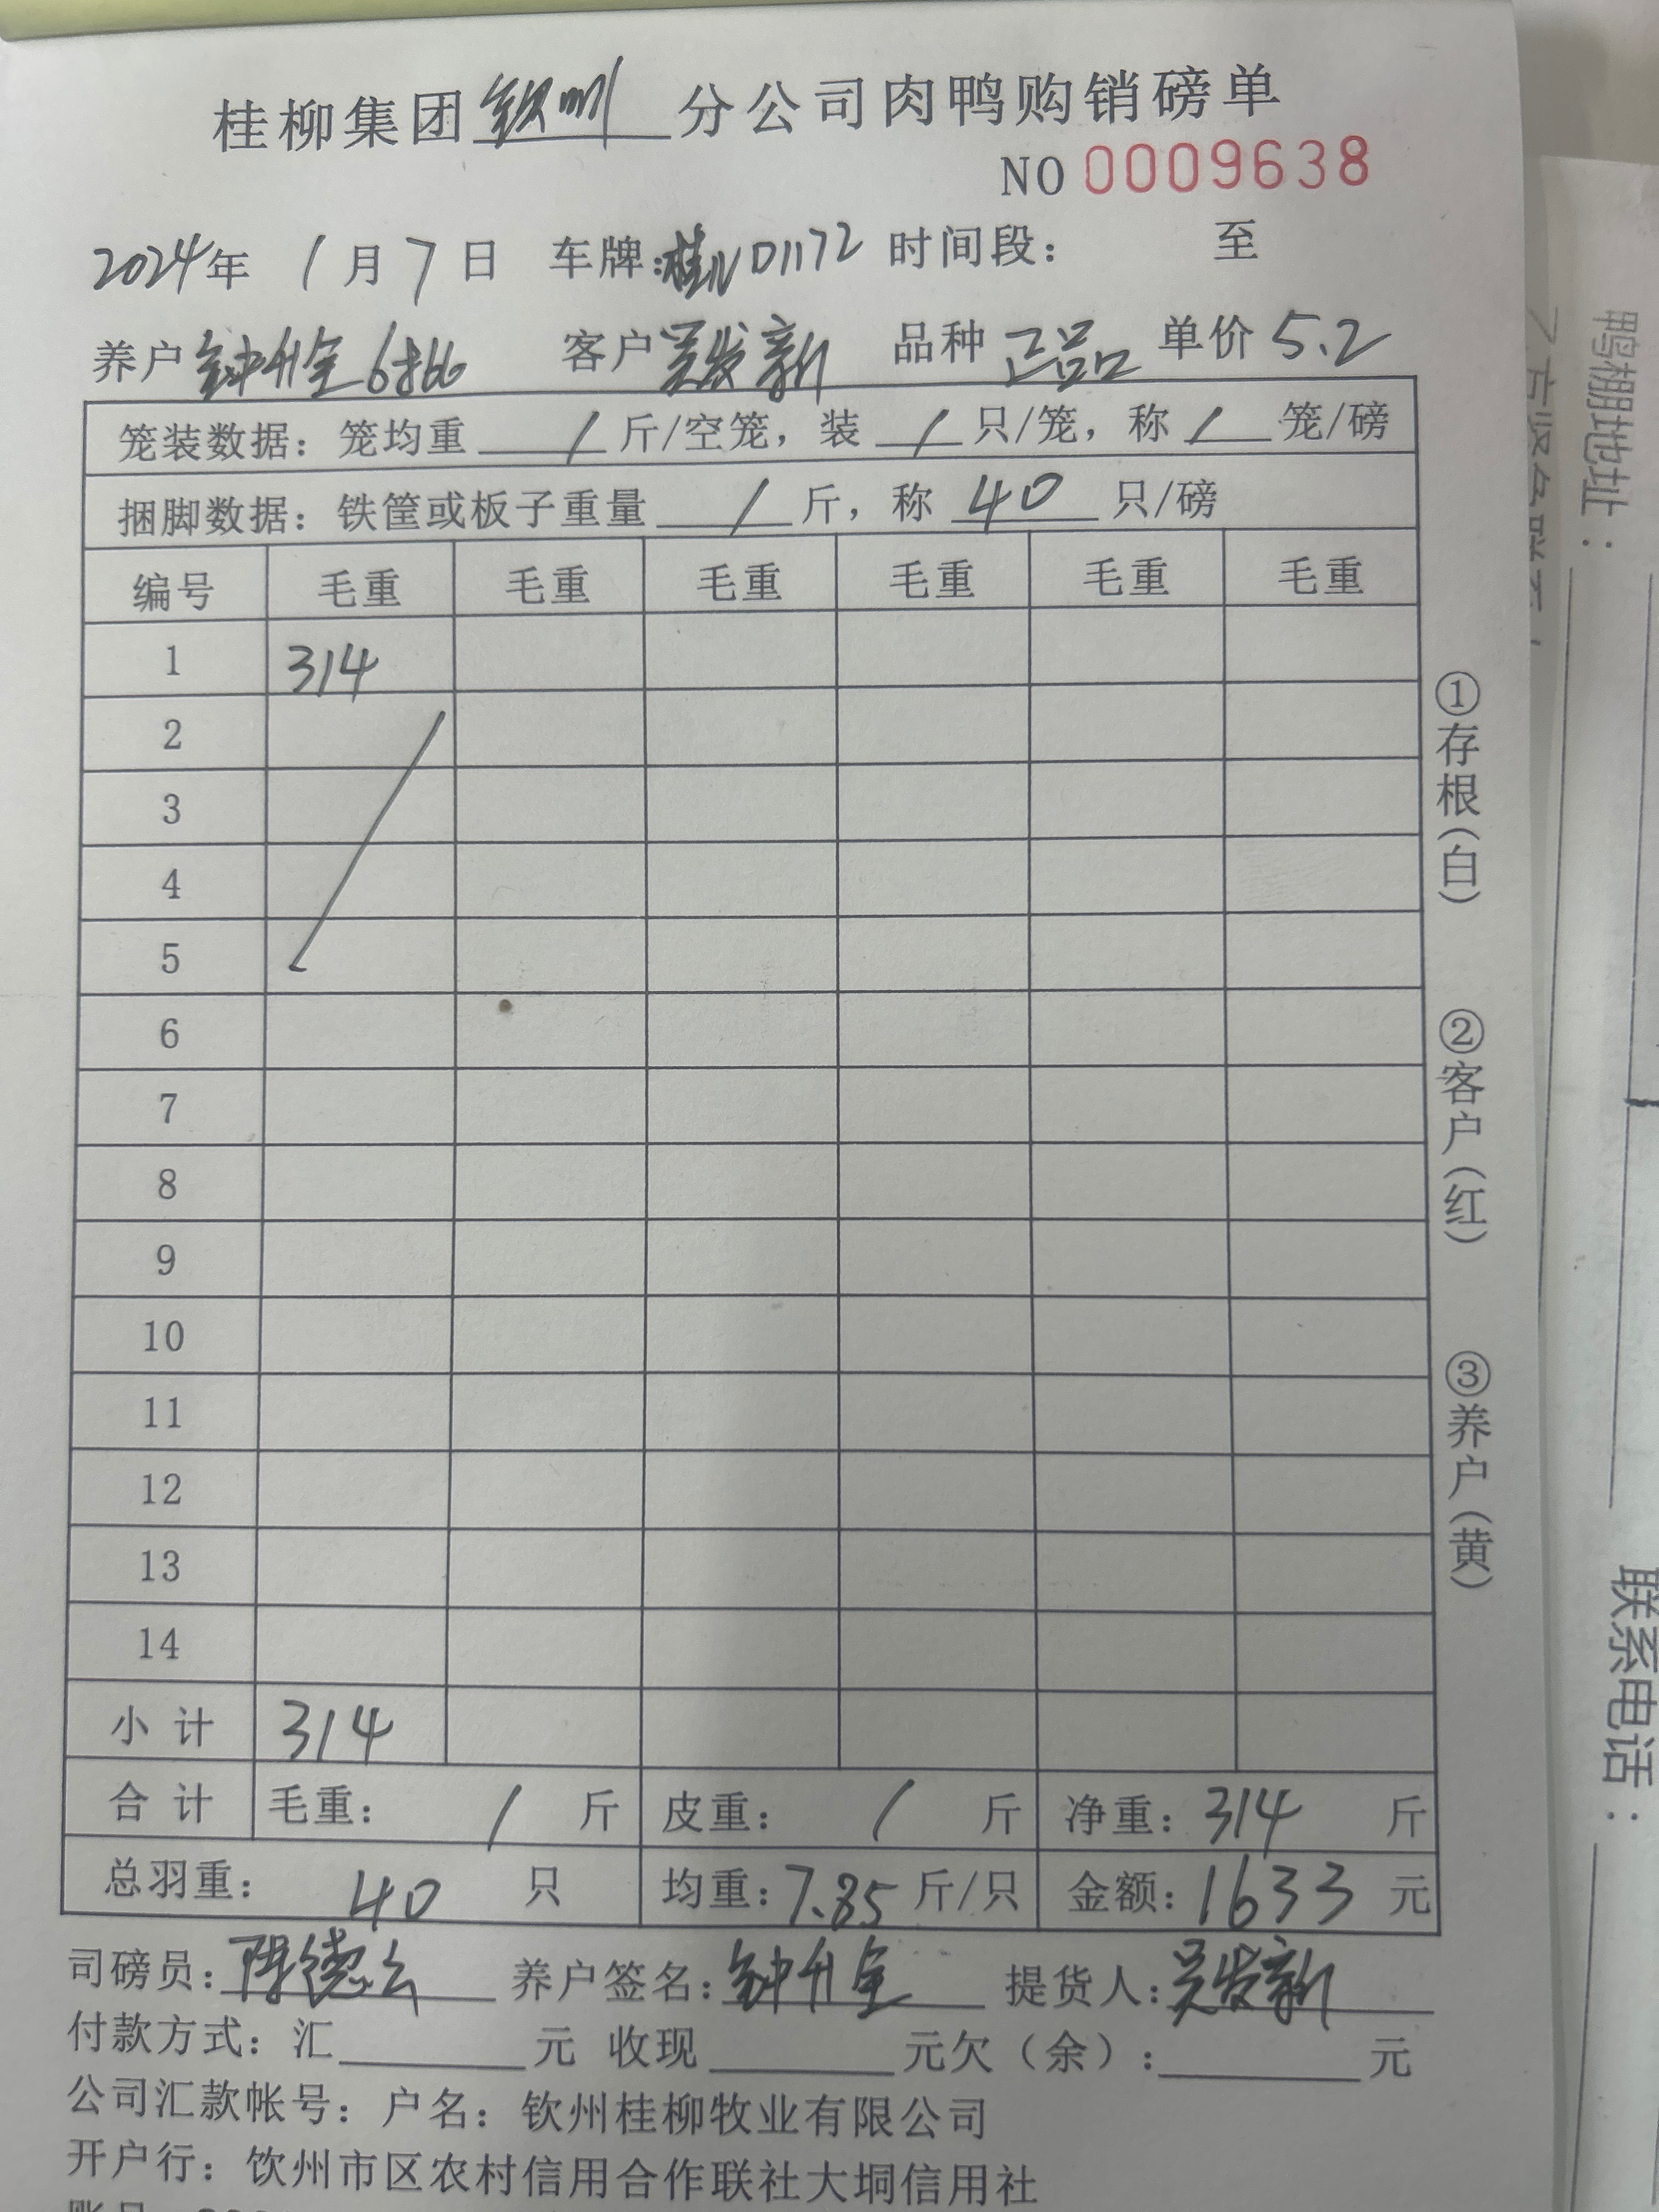 桂柳集团钦州分公司肉鸭购销磅单
NO 0009638
2024年 1月7日 车牌:桂ND1172 时间段: 至
养户钟升全6#66 客户吴发新 品种正品 单价5.2
笼装数据:笼均重 / 斤/空笼,装 / 只/笼,称 / 笼/磅
捆脚数据:铁筐或板子重量 / 斤,称 40 只/磅
编号 毛重 毛重 毛重 毛重 毛重 毛重
1 314
2
3
4
5
6
7
8
9
10
11
12
13
14
小计 314
合计 毛重: / 斤 皮重: / 斤 净重:314 斤
总羽重: 40 只 均重:7.85斤/只 金额:1633元
司磅员:陈德云 养户签名:钟升全 提货人:吴发新
付款方式:汇 元 收现 元欠(余): 元
公司汇款帐号:户名:钦州桂柳牧业有限公司
开户行:钦州市区农村信用合作联社大垌信用社
①存根(白)
②客户(红)
③养户(黄)
鸭棚地址:
联系电话: